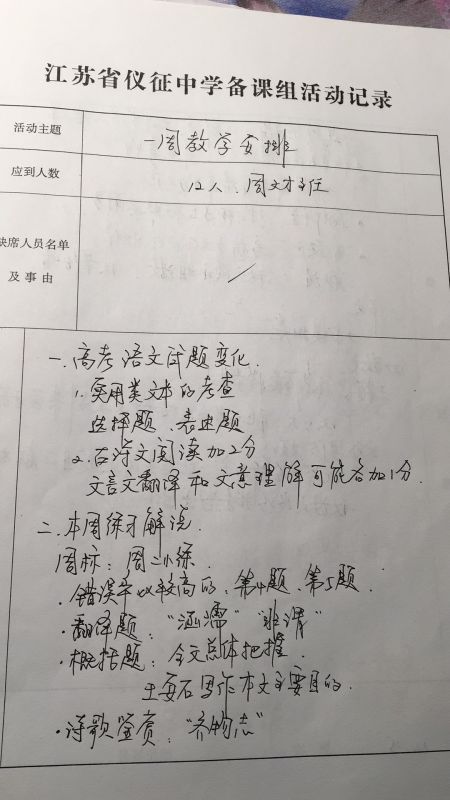 江苏省仪征中学备课组活动记录
活动主题
一周教学安排
应到人数
12人、周文才主任
缺席人员名单
及事由
一、高考语文试题变化.
1. 实用类文本的考查
选择题、表述题
2. 古诗文阅读加2分
文言文翻译和文意理解可能各加1分.
二、本周练习解说.
周标：周二小练.
·错误率比较高的、第4题、第5题.
·翻译题："涵濡" "班谓"
·概括题：全文总体把握.
王安石写作本文主要目的.
·诗歌鉴赏："齐物志"